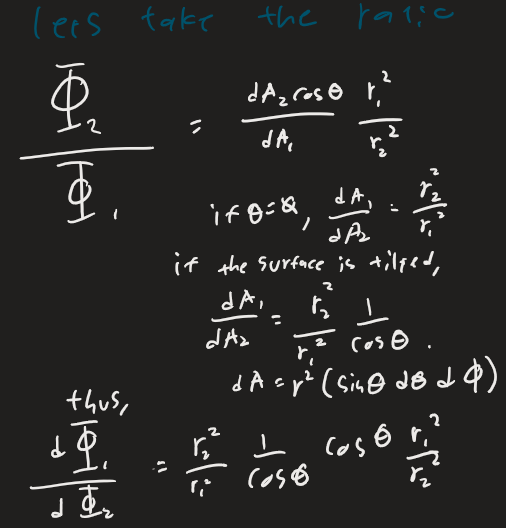 lets take the ratio
Φ̅₂/Φ̅₁ = (dA₂cosθ/dA₁) (r₁²/r₂²)
if θ=0, dA₁/dA₂ = r₂²/r₁²
if the surface is tilted,
dA₁/dA₂ = (r₂²/r₁²) (1/cosθ).
dA = r²(sinθ dθ dΦ)
thus,
dΦ̅₁/dΦ̅₂ = (r₂²/r₁²) (1/cosθ) cosθ (r₁²/r₂²)